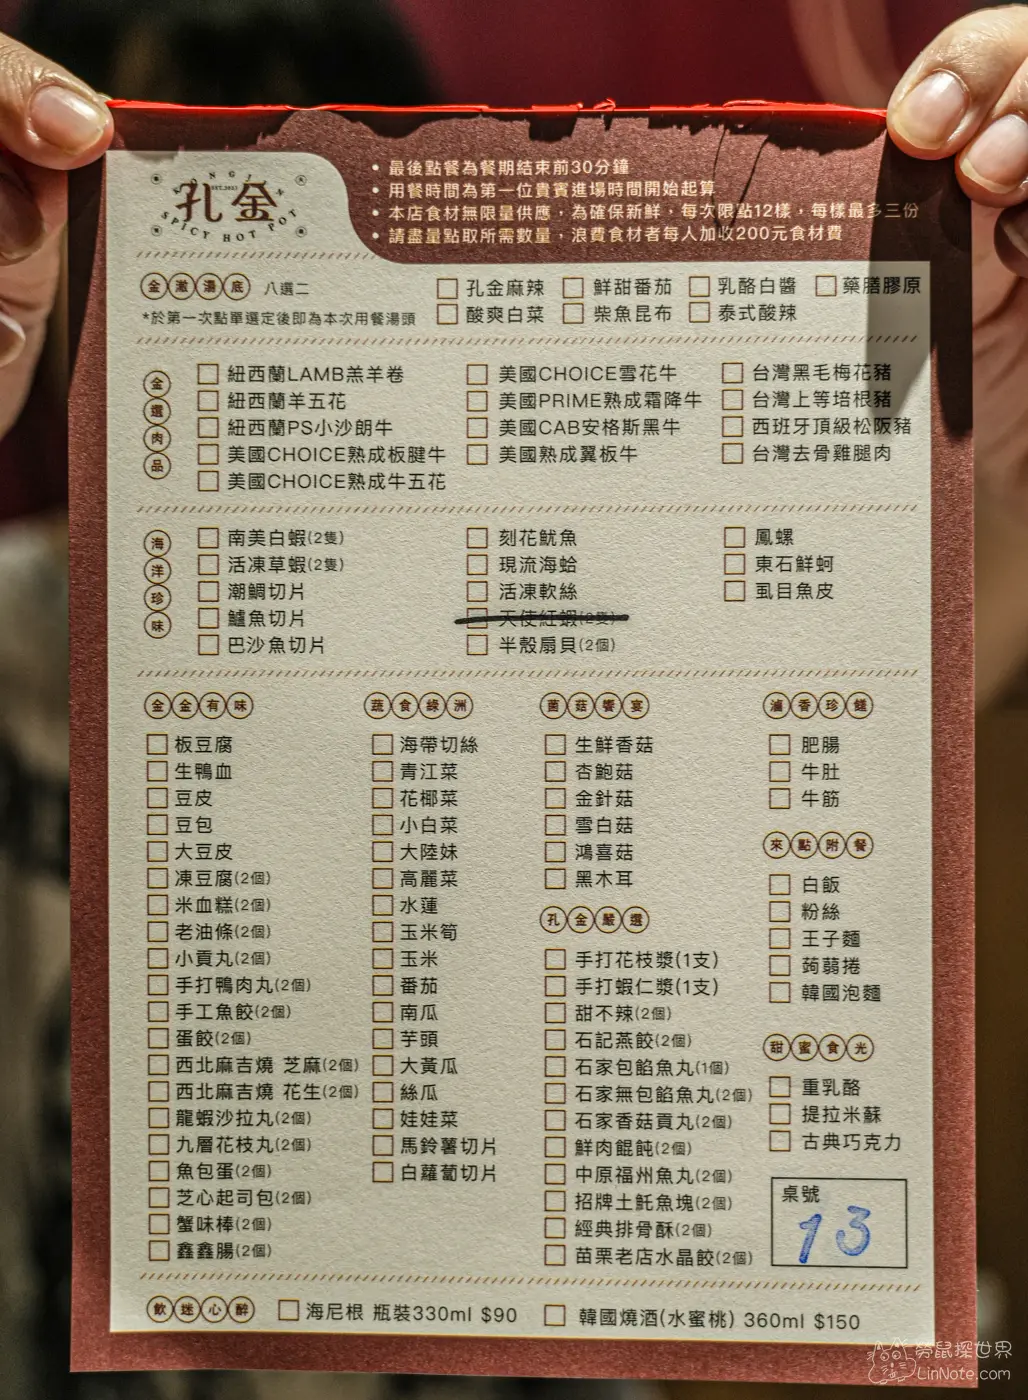 KONGJIN
EST.2021
孔金
SPICY HOT POT
• 最後點餐為餐期結束前30分鐘
• 用餐時間為第一位貴賓進場時間開始起算
• 本店食材無限量供應，為確保新鮮，每次限點12樣，每樣最多三份
• 請盡量點取所需數量，浪費食材者每人加收200元食材費
金澈湯底 八選二
*於第一次點單選定後即為本次用餐湯頭
孔金麻辣 鮮甜番茄 乳酪白醬 藥膳膠原
酸爽白菜 柴魚昆布 泰式酸辣
金選肉品
紐西蘭LAMB羔羊卷 美國CHOICE雪花牛 台灣黑毛梅花豬
紐西蘭羊五花 美國PRIME熟成霜降牛 台灣上等培根豬
紐西蘭PS小沙朗牛 美國CAB安格斯黑牛 西班牙頂級松阪豬
美國CHOICE熟成板腱牛 美國熟成翼板牛 台灣去骨雞腿肉
美國CHOICE熟成牛五花
海洋珍味
南美白蝦(2隻) 刻花魷魚 鳳螺
活凍草蝦(2隻) 現流海蛤 東石鮮蚵
潮鯛切片 活凍軟絲 虱目魚皮
鱸魚切片 天使紅蝦(2隻)
巴沙魚切片 半殼扇貝(2個)
金金有味
板豆腐
生鴨血
豆皮
豆包
大豆皮
凍豆腐(2個)
米血糕(2個)
老油條(2個)
小貢丸(2個)
手打鴨肉丸(2個)
手工魚餃(2個)
蛋餃(2個)
西北麻吉燒 芝麻(2個)
西北麻吉燒 花生(2個)
龍蝦沙拉丸(2個)
九層花枝丸(2個)
魚包蛋(2個)
芝心起司包(2個)
蟹味棒(2個)
鑫鑫腸(2個)
蔬食綠洲
海帶切絲
青江菜
花椰菜
小白菜
大陸妹
高麗菜
水蓮
玉米筍
玉米
番茄
南瓜
芋頭
大黃瓜
絲瓜
娃娃菜
馬鈴薯切片
白蘿蔔切片
菌菇饗宴
生鮮香菇
杏鮑菇
金針菇
雪白菇
鴻喜菇
黑木耳
孔金嚴選
手打花枝漿(1支)
手打蝦仁漿(1支)
甜不辣(2個)
石記燕餃(2個)
石家包餡魚丸(1個)
石家無包餡魚丸(2個)
石家香菇貢丸(2個)
鮮肉餛飩(2個)
中原福州魚丸(2個)
招牌土魠魚塊(2個)
經典排骨酥(2個)
苗栗老店水晶餃(2個)
滷香珍饈
肥腸
牛肚
牛筋
來點附餐
白飯
粉絲
王子麵
蒟蒻捲
韓國泡麵
甜蜜食光
重乳酪
提拉米蘇
古典巧克力
桌號
13
飲迷心醉 海尼根 瓶裝330ml $90 韓國燒酒(水蜜桃) 360ml $150
旁鼠探世界
LinNote.com